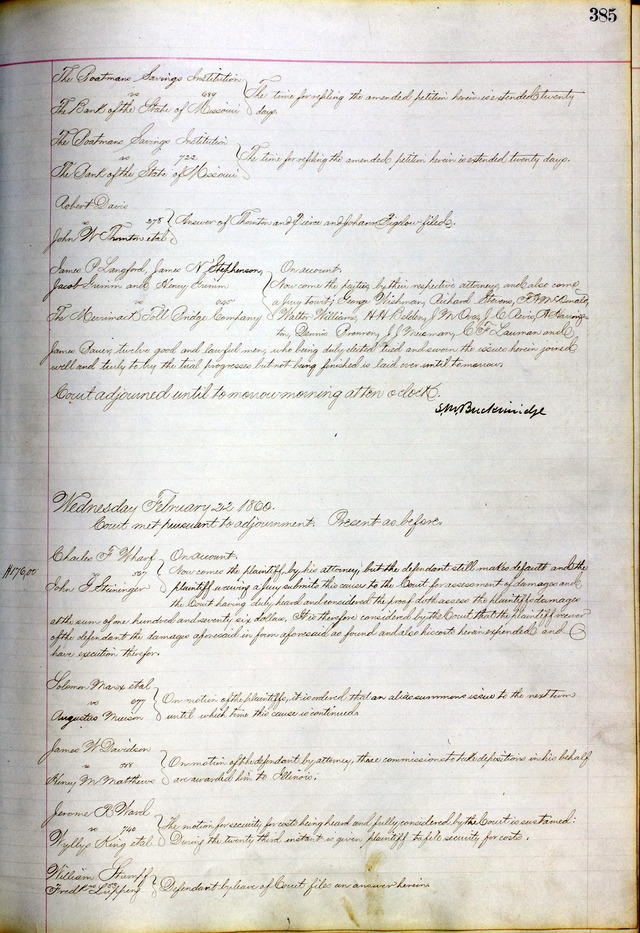 385
The Boatmans Savings Institution
vs 689 The time for refiling the amended petition herein is extended twenty
The Bank of the State of Missouri days.
The Boatmans Savings Institution
vs 722 The time for refiling the amended petition herein is extended twenty days.
The Bank of the State of Missouri
Robert Davis
vs 278 Answer of Thornton and Pierce and Johann Bigelow filed.
John W Thornton et al
James P. Langford, James N. Stephenson, On account.
Jacob Grimm and Henry Grimm Now come the parties by their respective attorneys, and also come
vs a jury to wit; George Wishman, Richard Stevens,
The Merrimack Toll Bridge Company Walter Williams, H H J M J C
Dennis J J C F Lauman and
James twelve good and lawful men, who being duly elected tried and sworn the issues herein joined
well and truly to try the trial progresses but not being finished is laid over until tomorrow.
Court adjourned until tomorrow morning at ten o clock.
S. M. Breckinridge
Wednesday February 22 1860.
Court met pursuant to adjournment. Present as before.
Charles F. Wharf On account.
$176,00 vs Now comes the plaintiff, by his attorney, but the defendant still makes default and the
John G plaintiff waiving a jury submits this cause to the Court for assessment of damages and
the Court having duly heard and considered the proof doth assess the plaintiffs damages
at the sum of one hundred and seventy six dollars. It is therefore considered by the Court that the plaintiff recover
of the defendant the damages aforesaid in form aforesaid as found and also his costs herein expended and
have execution therefor.
Solomon Marx et al
vs 677 On motion of the plaintiffs, it is ordered that an alias summons issue to the next term
Augustus until which time this cause is continued.
James W. Davidson
vs On motion of the defendant by attorney, three commissions to take depositions in his behalf
Henry M. Matthews are awarded him to Illinois.
Jerome B. Ward
vs 740 The motion for security for costs being heard and fully considered by the Court is sustained:
Wyllys King et al During the twenty third instant is given plaintiff to file security for costs.
William Stumpf
Defendant by leave of Court files an answer herein.